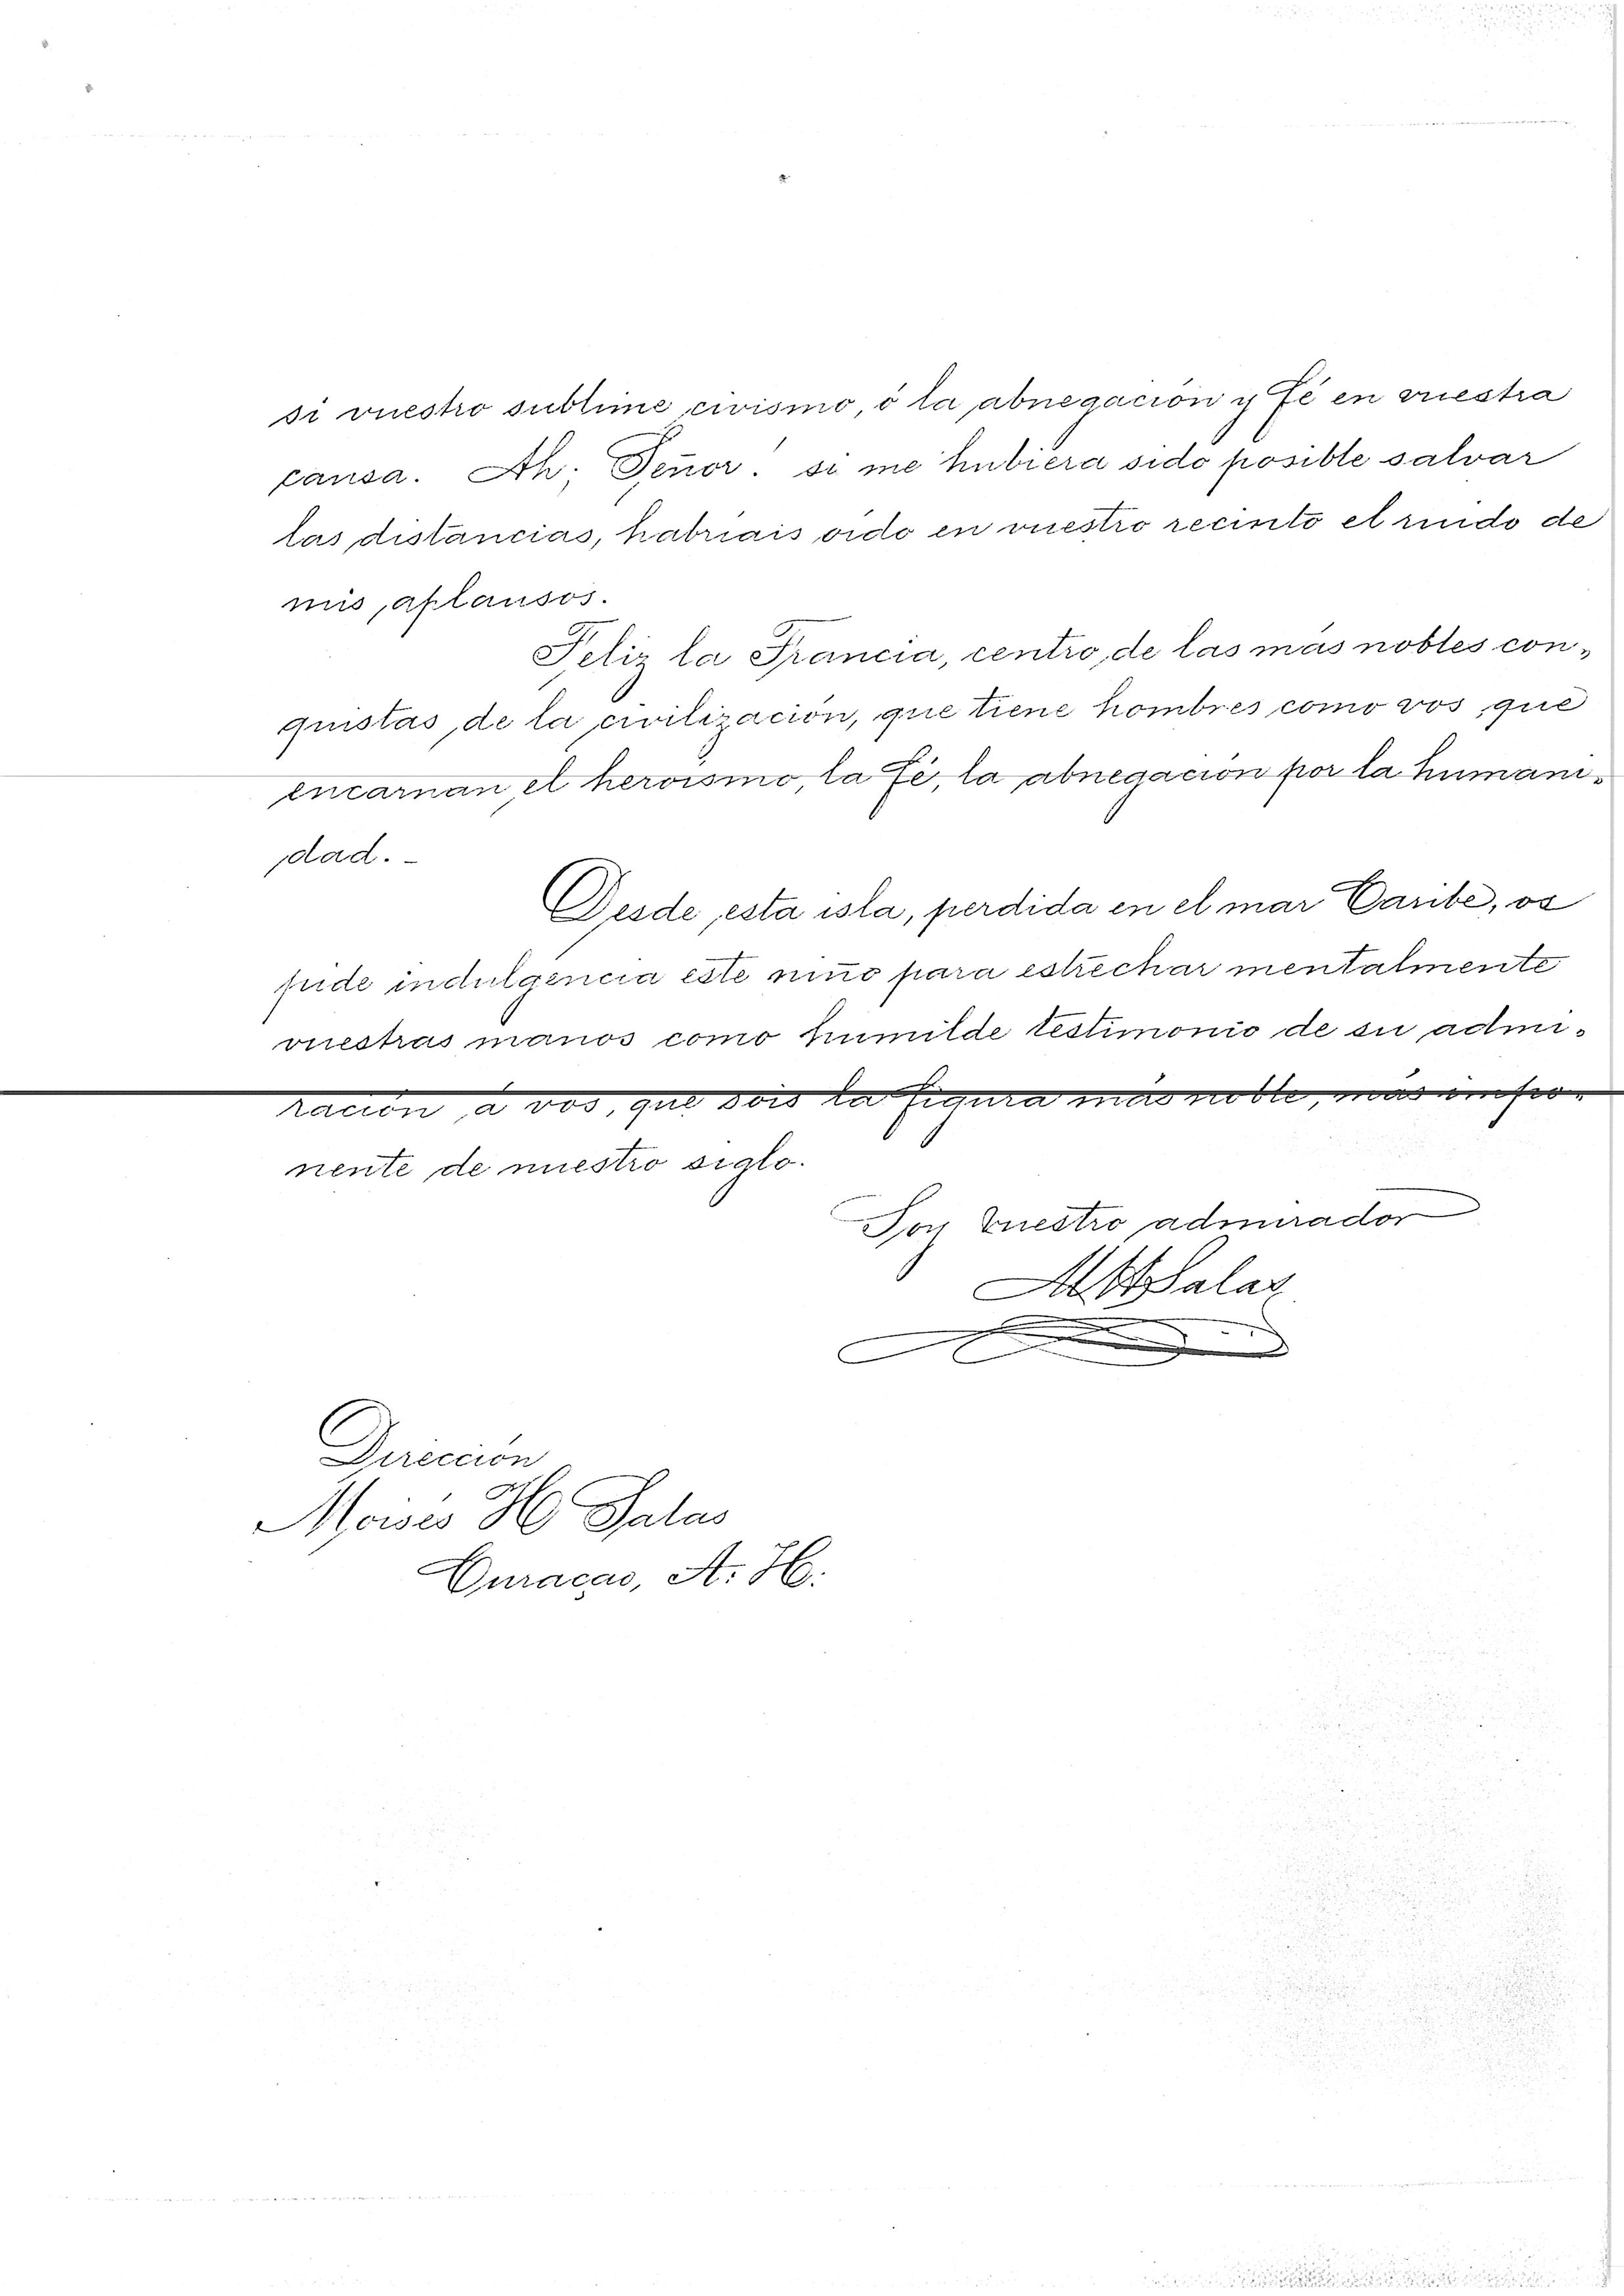 si vuestro sublime civismo, ó la abnegación y fé en vuestra
causa. Ah; Señor. si me hubiera sido posible salvar
las distancias, habriais oido en vuestro recinto el ruido de
mis aplausos.
Feliz la Francia, centro de las más nobles con-
quistas de la civilización, que tiene hombres como vos, que
encarnan el heroismo, la fé, la abnegación por la humani-
dad. -
Desde esta isla, perdida en el mar Caribe, os
pide indulgencia este niño para estrechar mentalmente
vuestras manos como humilde testimonio de su admi-
ración á vos, que sois la figura más noble, más impo-
nente de nuestro siglo.
Soy vuestro admirador
MHSalas
Dirección
Moisés H Salas
Curaçao, A. H.